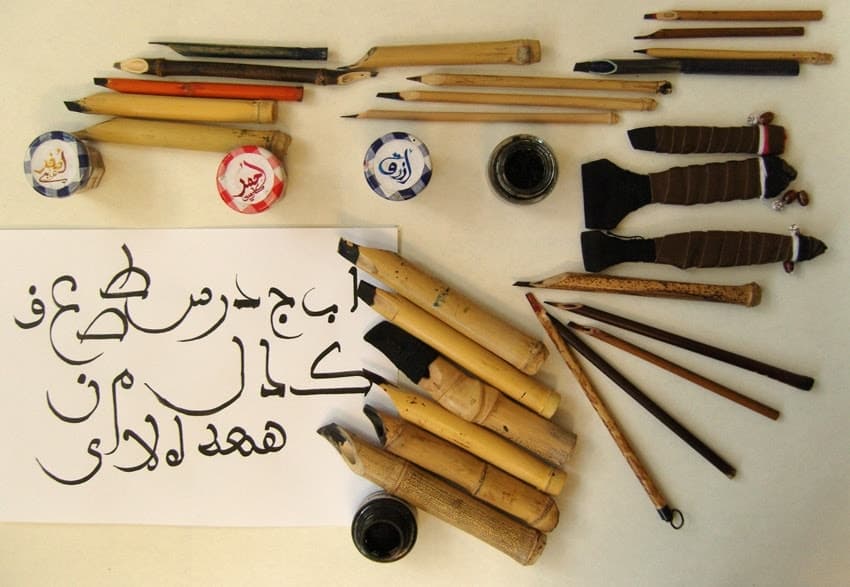 أصفر
أحمر
أزرق
ا ب ج د ر س ط ص ع ف
ک ل م ن
ههه ه لا ى